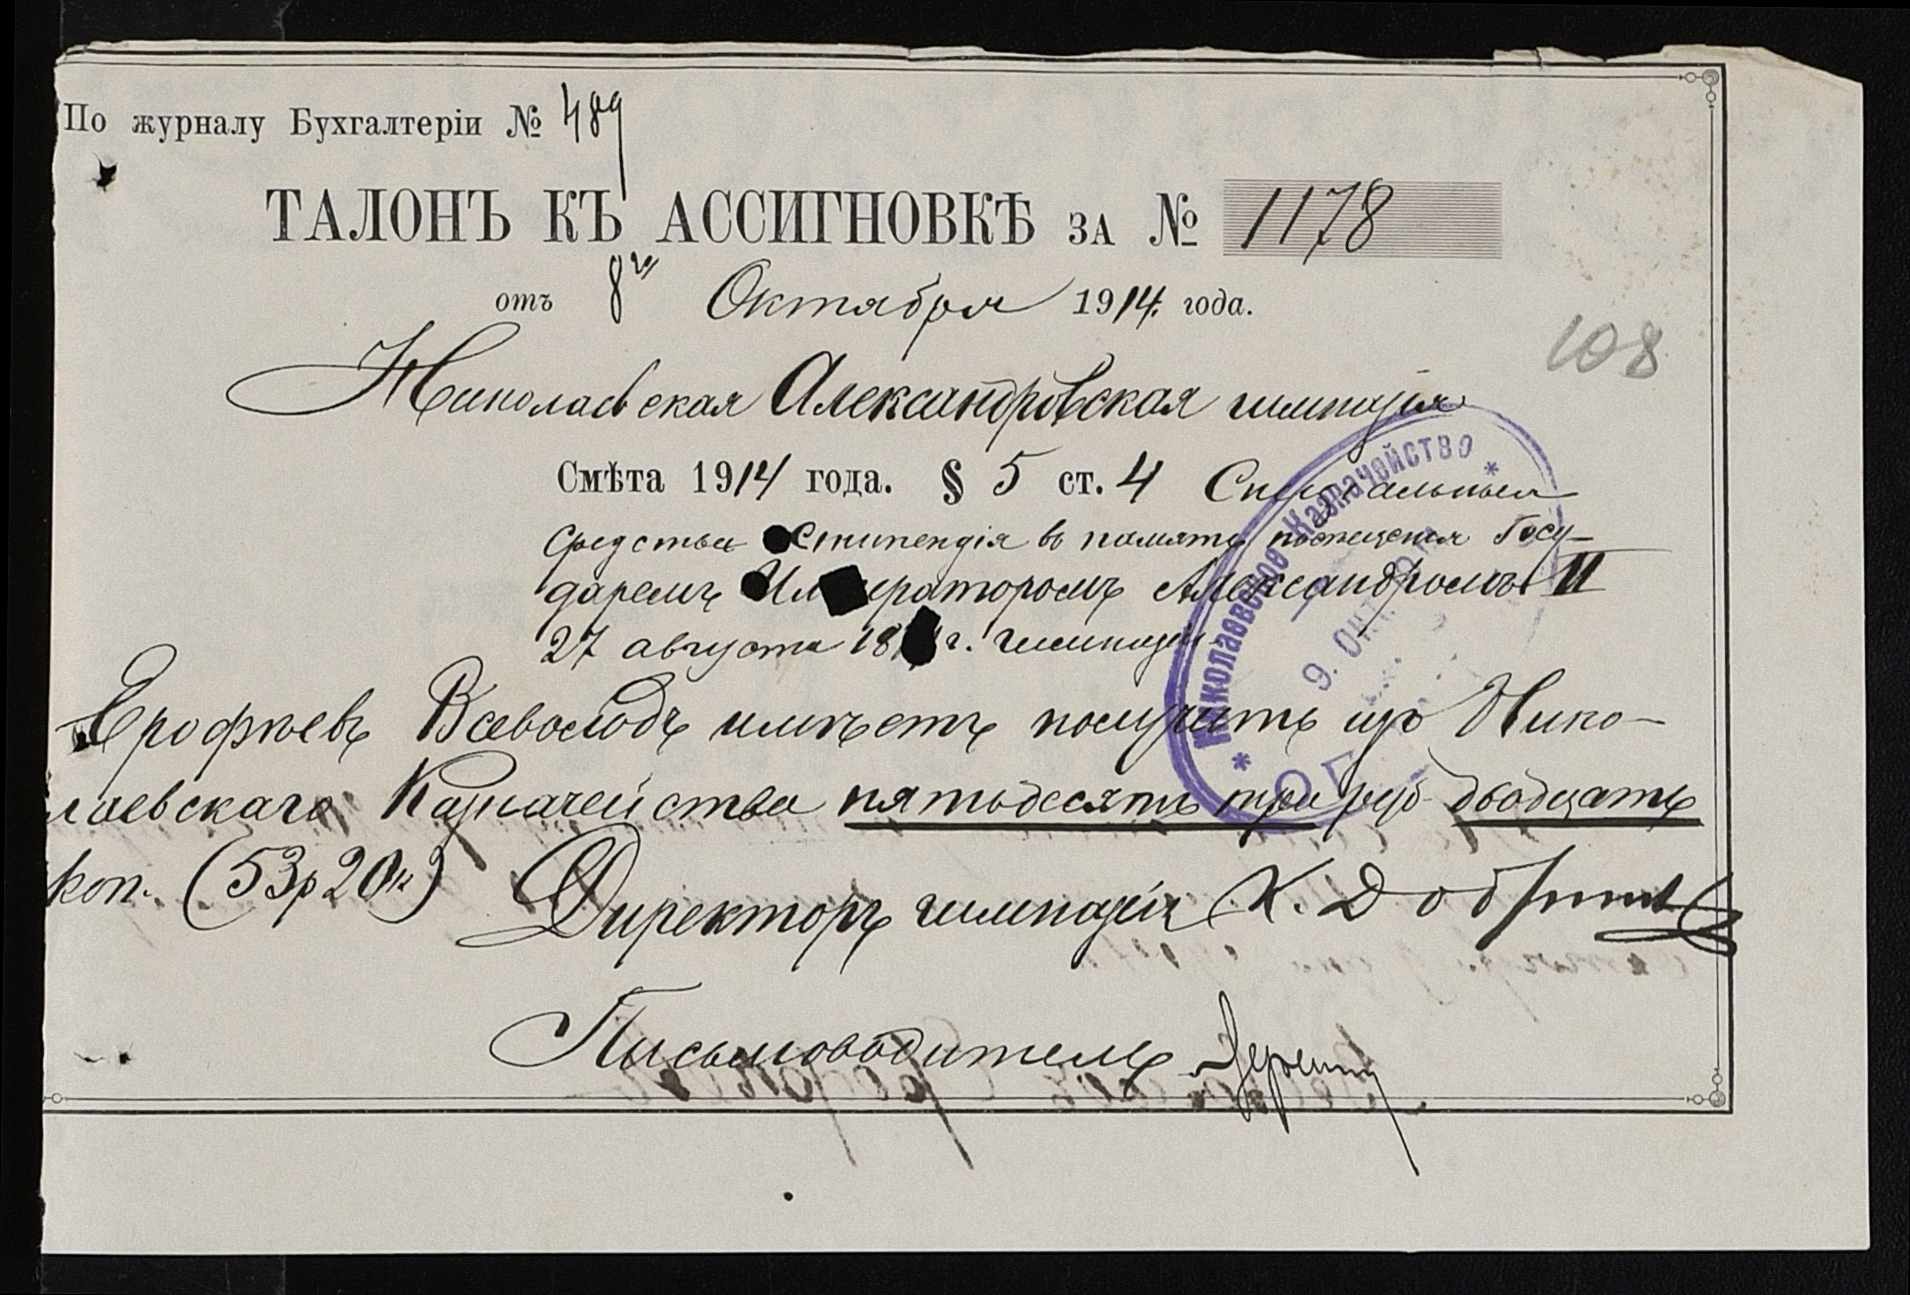 По журналу Бухгалтеріи № 489
ТАЛОНЪ КЪ АССИГНОВКѢ ЗА № 1178
отъ 8го Октября 1914 года.
108
Николаевская Александровская гимназія
Смѣта 1914 года. § 5 ст. 4 Спеціальныя
средства стипендія въ память посѣщенія Госу-
даремъ Императоромъ Александромъ II
27 августа 18 г. гимназіи
Ерофѣевъ Всеволодъ имѣетъ получить изъ Нико-
лаевскаго Казначейства пятьдесятъ три руб двадцать
коп. (53р 20к)
Директоръ гимназіи К. Добр
Письмоводитель
* Николаевское Казначейство *
9. ОКТ